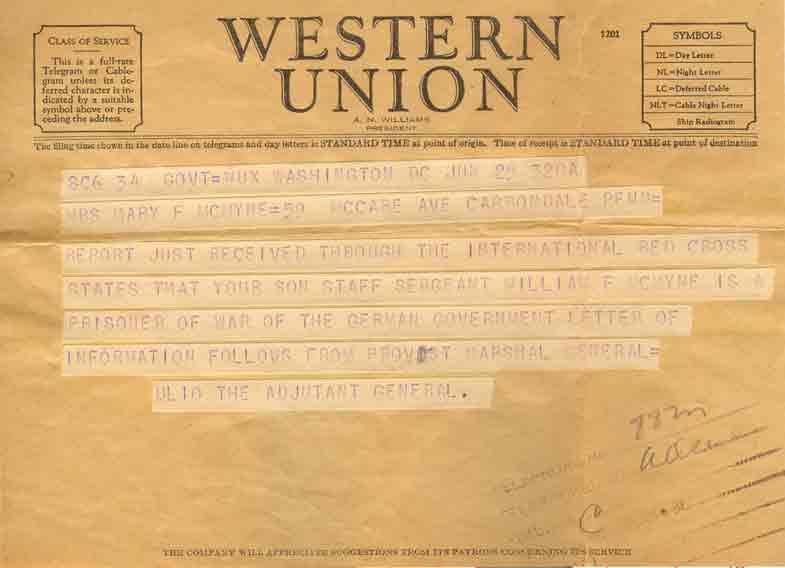 CLASS OF SERVICE
This is a full-rate
Telegram or Cable-
gram unless its de-
ferred character is in-
dicated by a suitable
symbol above or pre-
ceding the address.
WESTERN
UNION
A. N. WILLIAMS
PRESIDENT
1201
SYMBOLS
DL=Day Letter
NL=Night Letter
LC=Deferred Cable
NLT=Cable Night Letter
Ship Radiogram
The filing time shown in the date line on telegrams and day letters is STANDARD TIME at point of origin. Time of receipt is STANDARD TIME at point of destination
SC6 34 GOVT=WUX WASHINGTON DC JUN 320A
MRS MARY F MCMYNE=59 MCCABE AVE CARBONDALE PENN=
REPORT JUST RECEIVED THROUGH THE INTERNATIONAL RED CROSS
STATES THAT YOUR SON STAFF SERGEANT WILLIAM F MCMYNE IS A
PRISONER OF WAR OF THE GERMAN GOVERNMENT LETTER OF
INFORMATION FOLLOWS FROM PROVOST MARSHAL GENERAL=
ULIO THE ADJUTANT GENERAL.
THE COMPANY WILL APPRECIATE SUGGESTIONS FROM ITS PATRONS CONCERNING ITS SERVICE